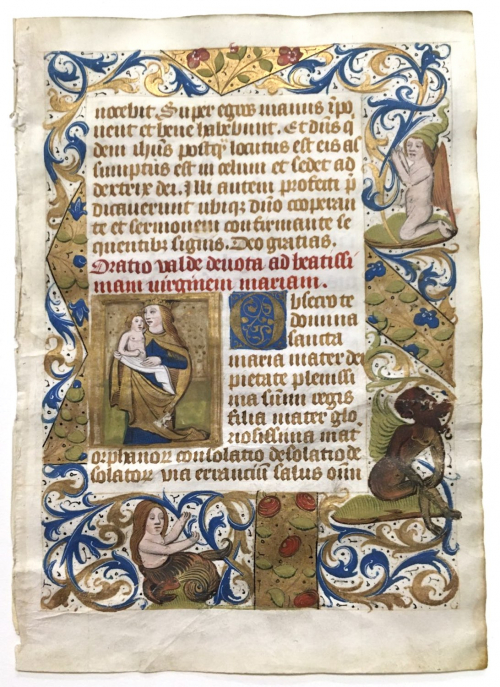 nocebit. Super egros manus īpo
nent et bene habebunt. Et dn̄s q̄
dem ih̄us postq̄ locutus est eis as
sumptus est in celum et sedet ad
dextris dei. Illi autem profecti p̄
dicauerunt ubiqꝫ dn̄o cooperan
te et sermonem confirmante se
quentibꝫ signis. Deo gratias.
Oratio valde deuota ad beatissi
mam uirginem mariam.
Obsecro te
domina
sancta
maria mater dei
pietate plenissi
ma sūmi regis
filia mater glo
riosissima mat̄
orphanoꝝ consolatio desolatoꝝ de
solatoꝝ via erranciū̄ salus oīm